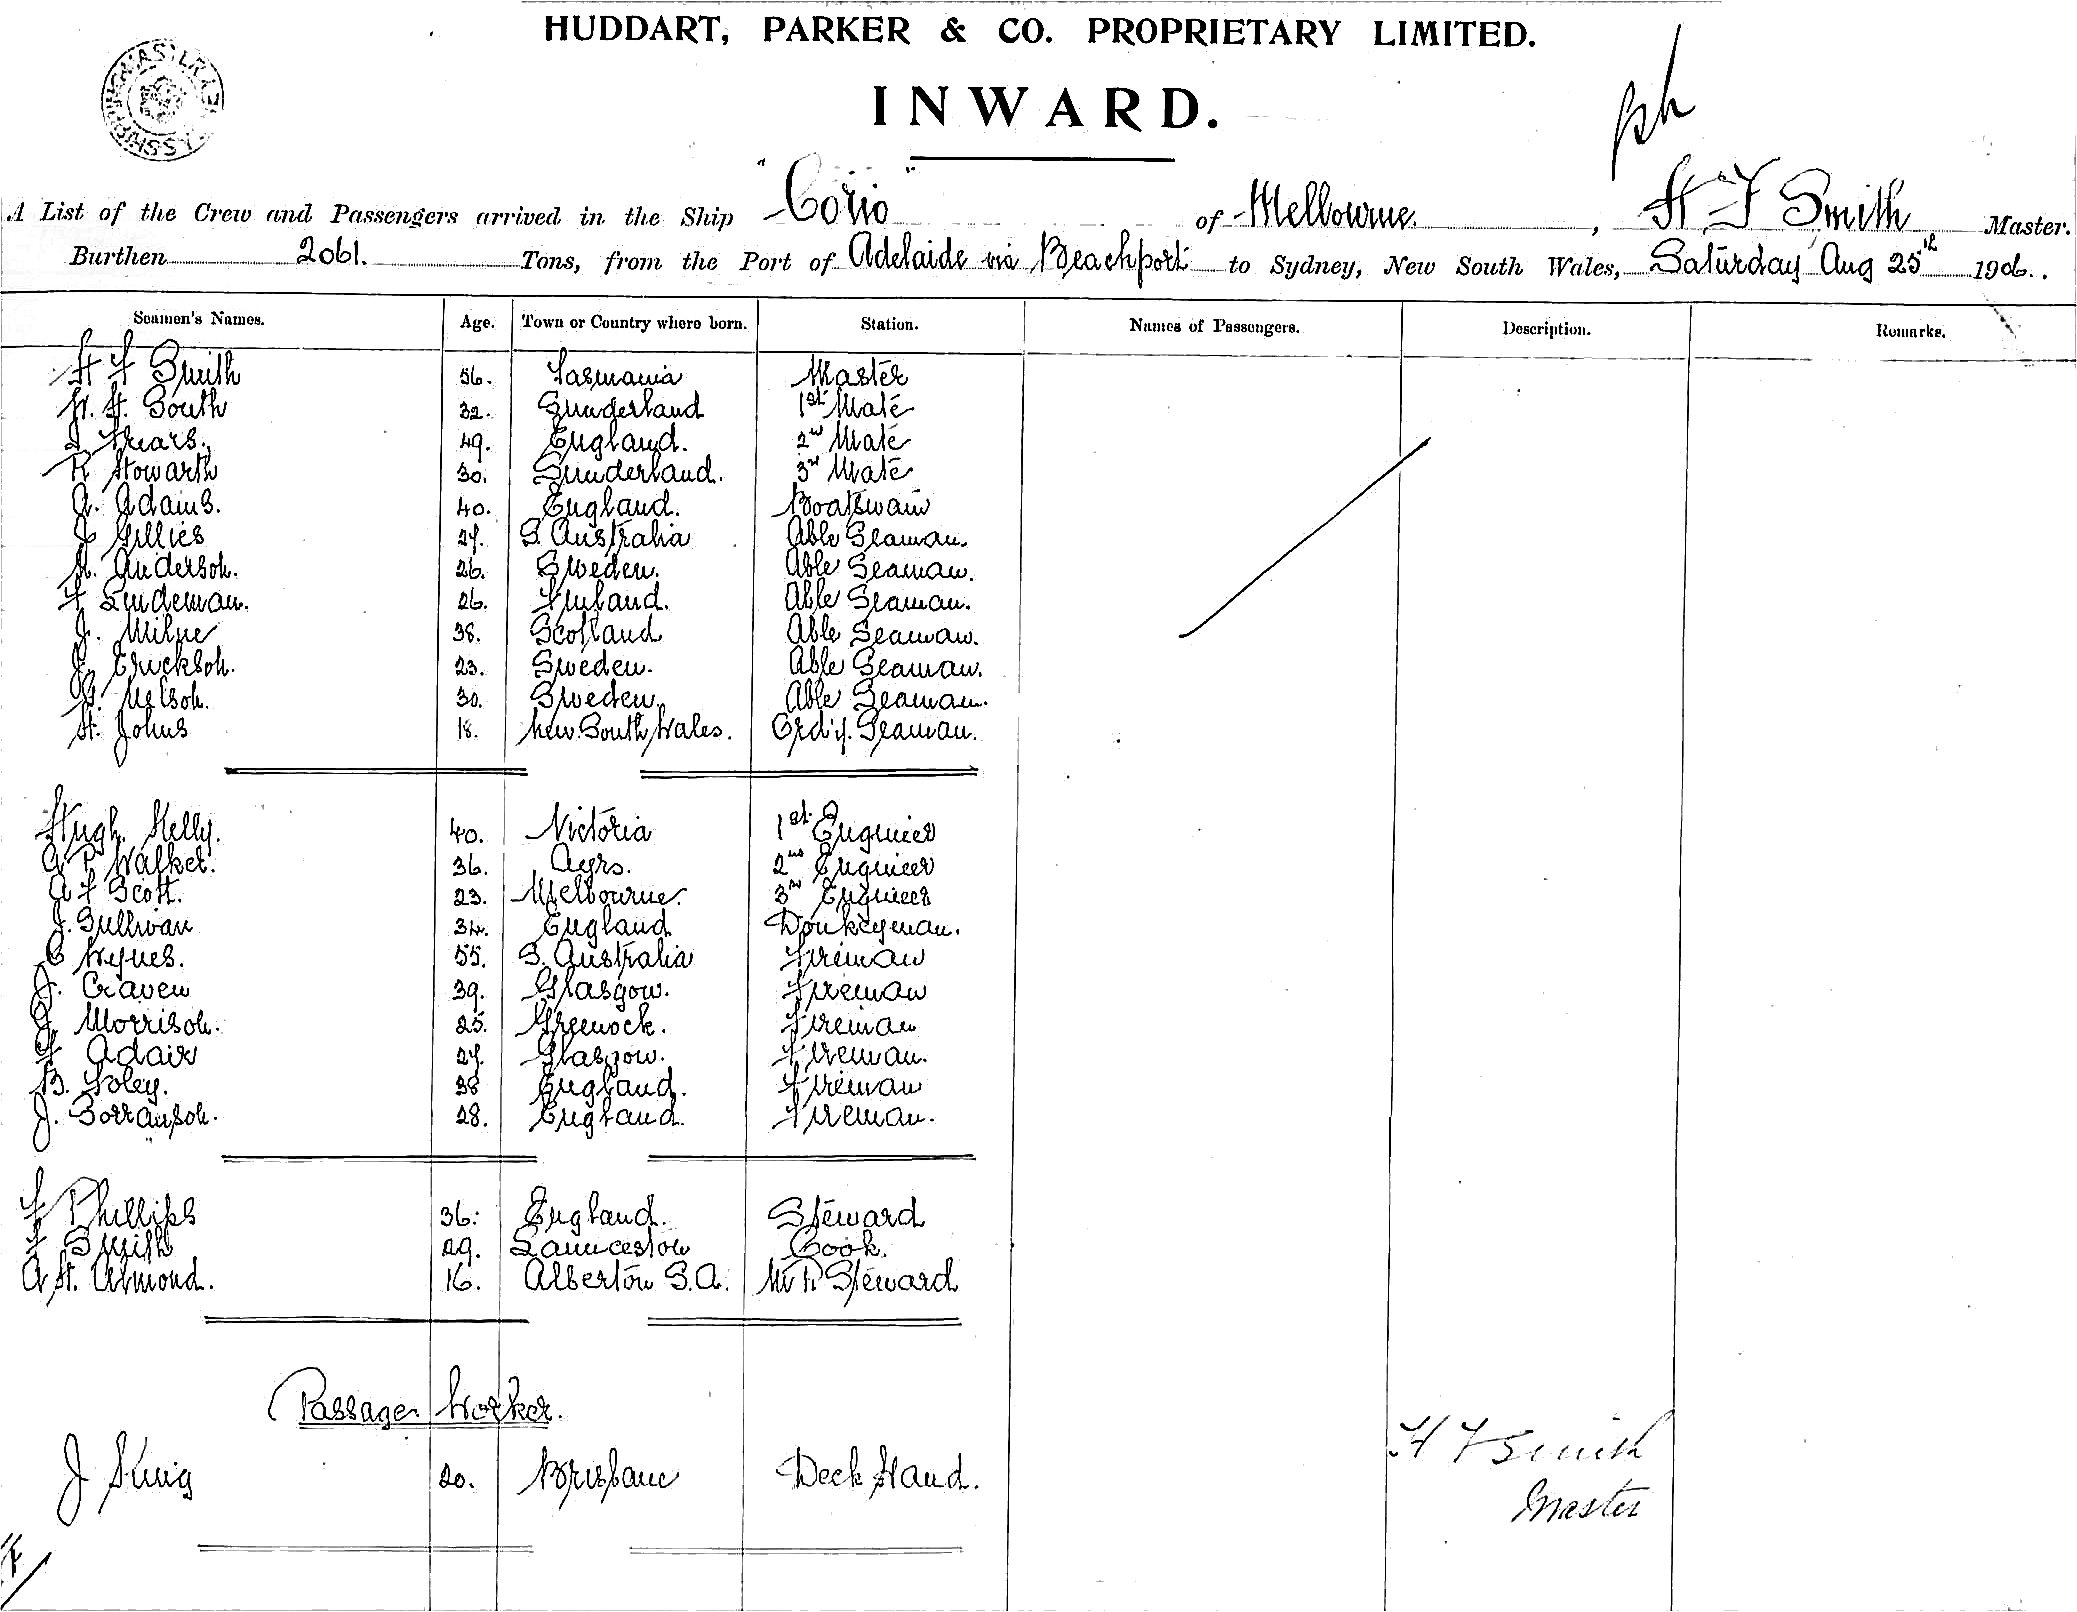 HUDDART, PARKER & CO. PROPRIETARY LIMITED.
INWARD.
A List of the Crew and Passengers arrived in the Ship "Corio" of Melbourne, H F Smith Master.
Burthen 2061. Tons, from the Port of Adelaide via Beachport to Sydney, New South Wales, Saturday Aug 25th 1906.
Seamen's Names. Age. Town or Country where born. Station. Names of Passengers. Description. Remarks.
H F Smith 56. Tasmania Master
H. South 32. Sunderland 1st Mate
49. England. 2nd Mate
R Howarth 30. Sunderland. 3rd Mate
A. Adams. 40. England. Boatswain
J Gillies 27. S. Australia Able Seaman.
A. Anderson. 26. Sweden. Able Seaman.
F Lindeman. 26. Finland. Able Seaman.
J. Milne 38. Scotland Able Seaman.
J. Erickson. 23. Sweden. Able Seaman.
Nelson. 30. Sweden. Able Seaman.
H. Johns 18. New South Wales. Ord'y. Seaman.
Hugh Kelly. 40. Victoria 1st Engineer
A P Walker. 36. Ayrs. 2nd Engineer
A F Scott. 23. Melbourne. 3rd Engineer
J. Sullivan 34. England Donkeyman.
C Wynes. 55. S. Australia Fireman
J. Craven 39. Glasgow. Fireman
J Morrison. 25. Greenock. Fireman
F Adair 27. Glasgow. Fireman.
B. Foley. 38 England. Fireman
J. 28. England. Fireman.
F Phillips 36. England. Steward
F Smith 29. Launceston Cook.
A H. Almond. 16. Alberton S.A. Steward
Passage Worker.
J King 20. Brisbane Deck Hand.
H F Smith
Master